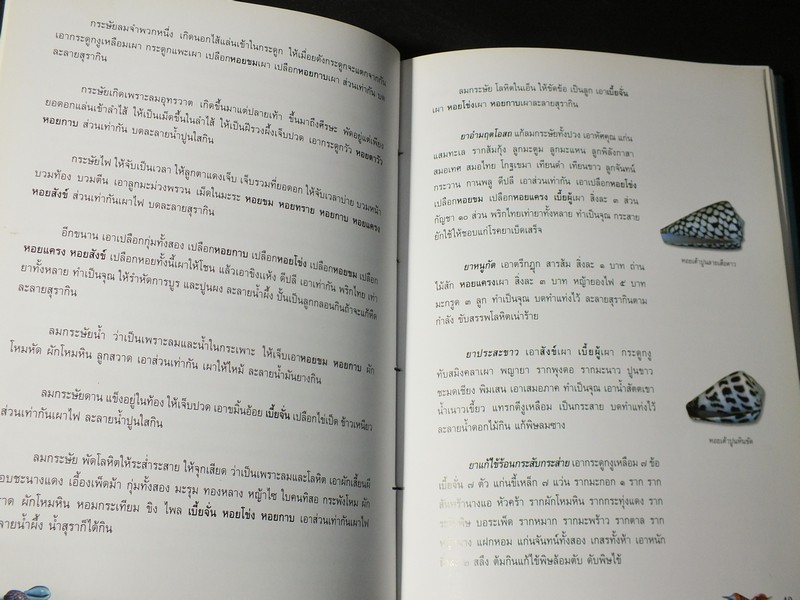 กระษัยลมจำพวกหนึ่ง เกิดนอกไส้แล่นเข้าในกระดูก ให้เมื่อยดังกระดูกจะแตกจากกัน
เอากระดูกงูเหลือมเผา กระดูกแพะเผา เปลือกหอยขมเผา เปลือกหอยกาบเผา ส่วนเท่ากัน บด
ละลายสุรากิน
กระษัยเกิดเพราะลมอุทรวาต เกิดขึ้นมาแต่ปลายเท้า ขึ้นมาถึงศีรษะ พัดอยู่แต่เพียง
ยอดอกแล่นเข้าลำไส้ ให้เป็นเม็ดขึ้นในลำไส้ ให้เป็นฝีรวงผึ้งเจ็บปวด เอากระดูกวัว หอยตาวัว
หอยกาบ ส่วนเท่ากัน บดละลายน้ำปูนใสกิน
กระษัยไฟ ให้จับเป็นเวลา ให้ลูกตาแดงเจ็บ เจ็บรวมที่ยอดอก ให้จับเวลาบ่าย บวมหน้า
บวมท้อง บวมตีน เอาลูกมะม่วงพรวน เม็ดในมะระ หอยขม หอยทราย หอยกาบ หอยแครง
หอยสังข์ ส่วนเท่ากันเผาไฟ บดละลายสุรากิน
อีกขนาน เอาเปลือกกุ่มทั้งสอง เปลือกหอยกาบ เปลือกหอยโข่ง เปลือกหอยขม เปลือก
หอยแครง หอยสังข์ เปลือกหอยทั้งนี้เผาให้โชน แล้วเอาขิงแห้ง ดีปลี เอาเท่ากัน พริกไทย เท่า
ยาทั้งหลาย ทำเป็นจุณ ให้รำหัดการบูร และปูนผง ละลายน้ำผึ้ง ปั้นเป็นลูกกลอนกินถ้าจะแก้หืด
ละลายสุรากิน
ลมกระษัยน้ำ ว่าเป็นเพราะลมและน้ำในกระเพาะ ให้เจ็บเอาหอยขม หอยกาบ ผัก
โหมหัด ผักโหมหิน ลูกสวาด เอาส่วนเท่ากัน เผาให้ไหม้ ละลายน้ำมันยางกิน
ลมกระษัยดาน แข็งอยู่ในท้อง ให้เจ็บปวด เอาขมิ้นอ้อย เบี้ยจั่น เปลือกไข่เป็ด ข้าวเหนียว
ส่วนเท่ากันเผาไฟ ละลายน้ำปูนใสกิน
ลมกระษัย พัดโลหิตให้ระส่ำระสาย ให้จุกเสียด ว่าเป็นเพราะลมและโลหิต เอาผักเสี้ยนผี
อบชะนางแดง เอื้องเพ็ดม้า กุ่มทั้งสอง มะรุม ทองหลาง หญ้าไซ ใบคนทีสอ กระพังโหม ผัก
าด ผักโหมหิน หอมกระเทียม ขิง ไพล เบี้ยจั่น หอยโข่ง หอยกาบ เอาส่วนเท่ากันเผาไฟ
ะลายน้ำผึ้ง น้ำสุราก็ได้กิน
ลมกระษัย โลหิตในเอ็น ให้ขัดข้อ เป็นลูก เอาเบี้ยจั่น
เผา หอยโข่งเผา หอยกาบเผาละลายสุรากิน
ยาอำมฤตโอสถ แก้ลมกระษัยทั้งปวง เอาหัสคุณ แก่น
แสมทะเล รากส้มกุ้ง ลูกมะตูม ลูกมะแหน ลูกพิลังกาสา
สมอเทศ สมอไทย โกฐเขมา เทียนดำ เทียนขาว ลูกจันทน์
กระวาน กานพลู ดีปลี เอาส่วนเท่ากัน เอาเปลือกหอยโข่ง
เปลือกหอยขม เปลือกหอยแครง เบี้ยผู้เผา สิ่งละ ๓ ส่วน
กัญชา ๑๐ ส่วน พริกไทยเท่ายาทั้งหลาย ทำเป็นจุณ กระสาย
ยักใช้ให้ชอบแก่โรคยาเบ็ดเสร็จ
หอยเต้าปูนลายเสือดาว
ยาหนูกัด เอาตรีกฏุก สารส้ม สิ่งละ ๑ บาท ถ่าน
ไม้สัก หอยแครงเผา สิ่งละ ๓ บาท หญ้ายองไฟ ๕ บาท
มะกรูด ๓ ลูก ทำเป็นจุณ บดทำแท่งไว้ ละลายสุรากินตาม
กำลัง ขับสรรพโลหิตเน่าร้าย
ยาประสะขาว เอาสังข์เผา เบี้ยผู้เผา กระดูกงู
ทับสมิงคลาเผา พญายา รากพุงดอ รากมะนาว ปูนขาว
ชะมดเชียง พิมเสน เอาเสมอภาค ทำเป็นจุณ เอาน้ำลัดเขา
น้ำเนาวเขี้ยว แทรกดีงูเหลือม เป็นกระสาย บดทำแท่งไว้
ละลายน้ำดอกไม้กิน แก้พิษลมซาง
หอยเต้าปูนหินขัด
ยาแก้ไข้ร้อนกระสับกระส่าย เอากระดูกงูเหลือม ๗ ข้อ
เบี้ยจั่น ๗ ตัว แก่นขี้เหล็ก ๗ แว่น รากมะกอก ๑ ราก ราก
นางแอ หัวคร้า รากผักโหมหิน รากกระทุ่งแดง ราก
พิษ บอระเพ็ด รากหมาก รากมะพร้าว รากตาล ราก
าง แฝกหอม แก่นจันทน์ทั้งสอง เกสรทั้งห้า เอาหนัก
๑ สลึง ต้มกินแก้ไข้พิษล้อมตับ ดับพิษไข้